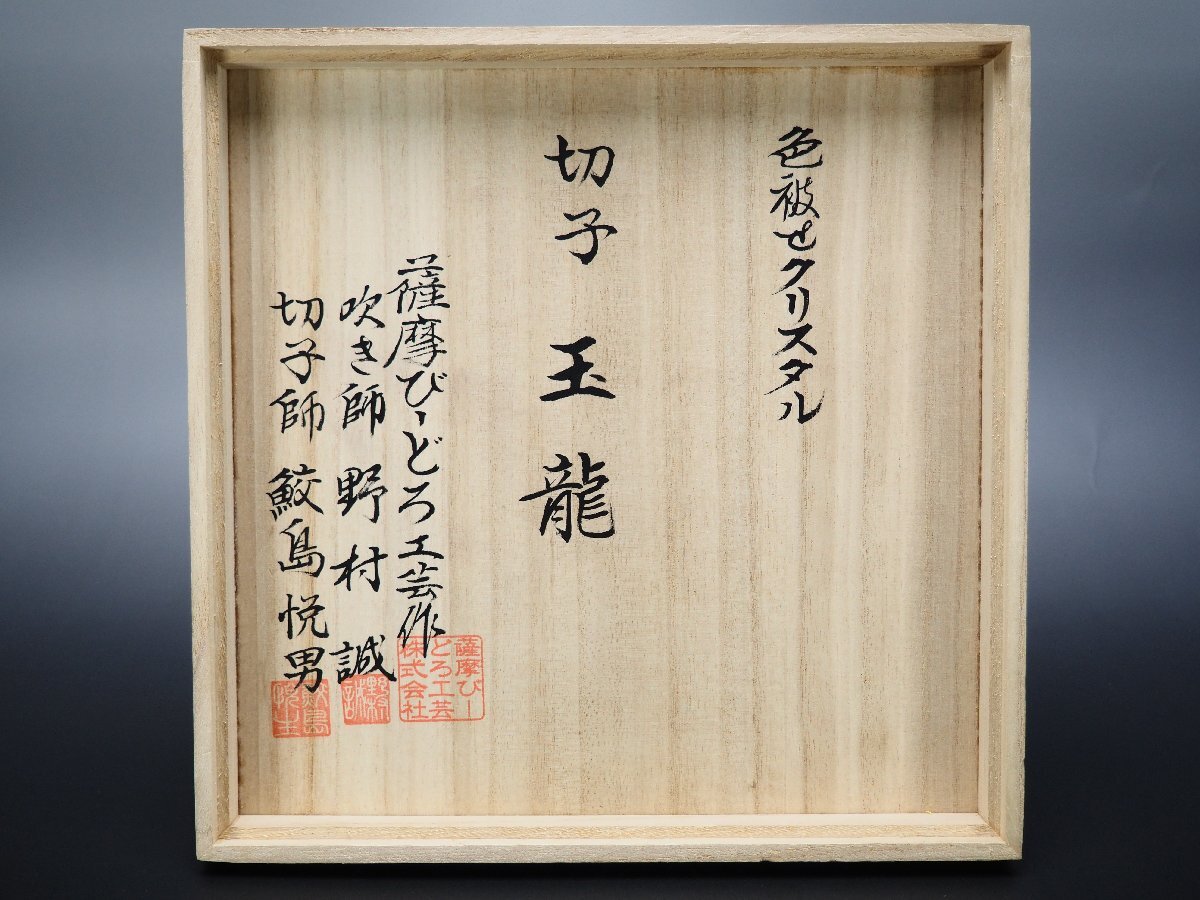 色被せクリスタル
切子 玉龍
薩摩びーどろ工芸作
吹き師 野村 誠
切子師 鮫島悦男
薩摩びー
どろ工芸
株式会社